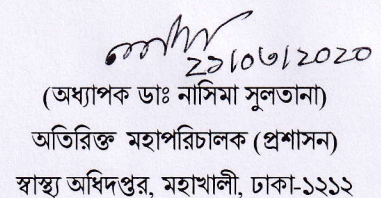 ২১/০৩/2020
(অধ্যাপক ডাঃ নাসিমা সুলতানা)
অতিরিক্ত মহাপরিচালক (প্রশাসন)
স্বাস্থ্য অধিদপ্তর, মহাখালী, ঢাকা-১২১২